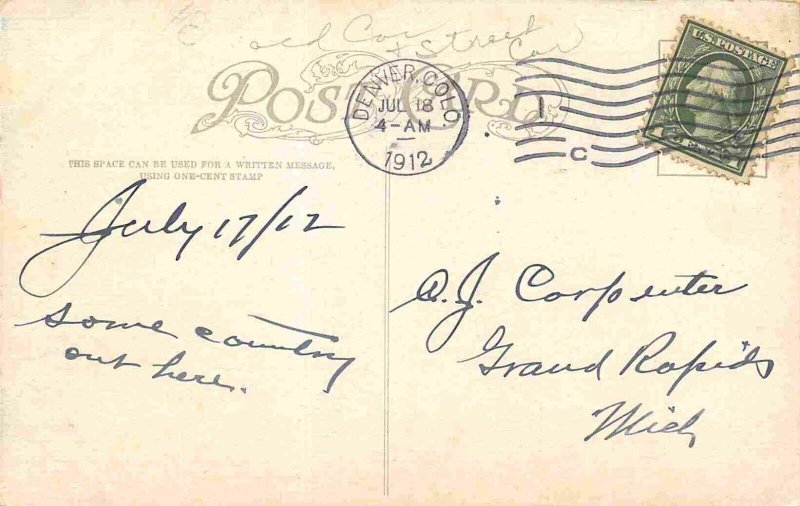 old Car
& Street
Car
POST CARD
DENVER, COLO.
JUL 18
4-AM
1912
1
C
U.S. POSTAGE
THIS SPACE CAN BE USED FOR A WRITTEN MESSAGE,
USING ONE-CENT STAMP
July 17/12
some country
out here.
A. J. Carpenter
Grand Rapids
Mich